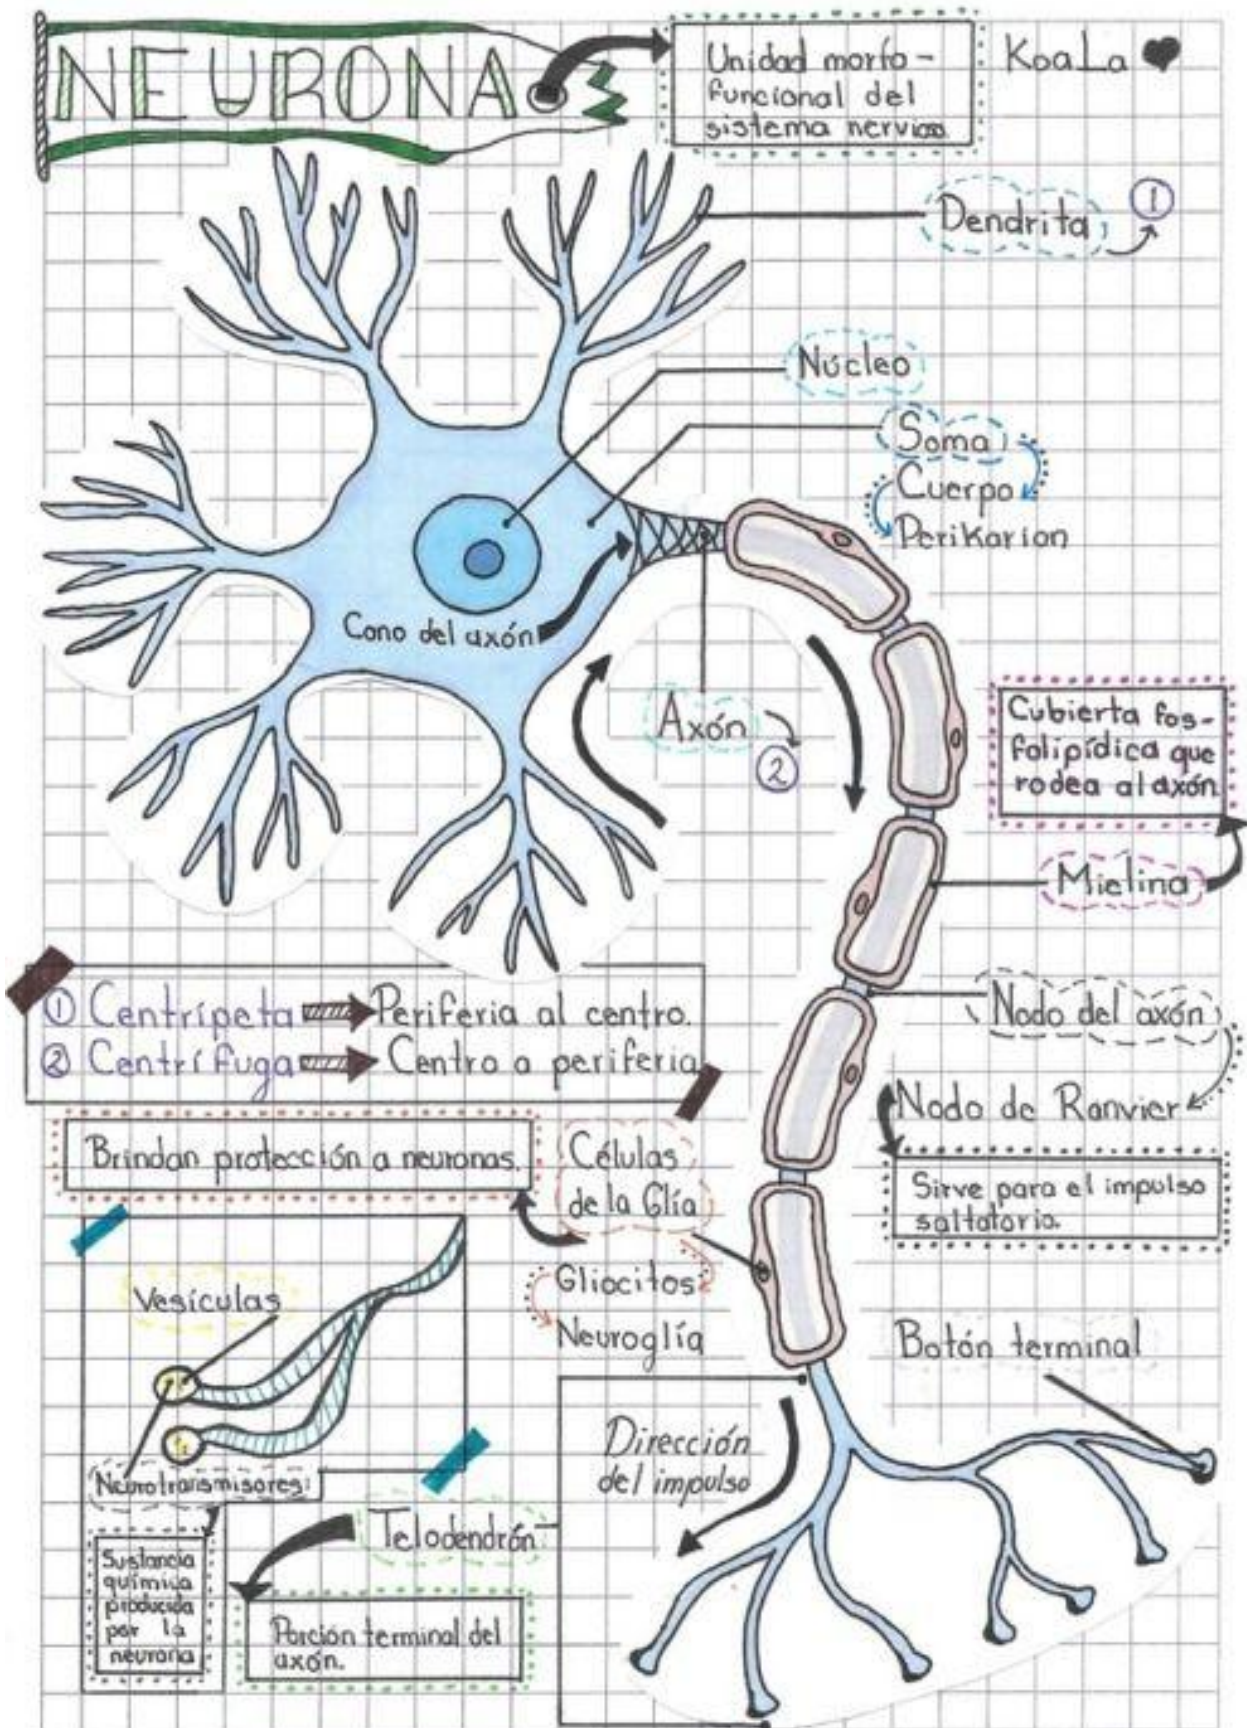 NEURONA
Unidad morfo-
funcional del
sistema nervioso.
KoaLa
Dendrita
1
Núcleo
Soma
Cuerpo
Perikarion
Cono del axón
Axón
2
Cubierta fos-
folipídica que
rodea al axón.
Mielina
1 Centrípeta Periferia al centro.
2 Centrífuga Centro a periferia
Nodo del axón
Nodo de Ranvier
Sirve para el impulso
saltatorio.
Brindan protección a neuronas.
Células
de la Glía
Gliocitos
Neuroglía
Vesículas
Neurotransmisores:
Sustancia
química
producida
por la
neurona
Botón terminal
Dirección
del impulso
Telodendrón
Porción terminal del
axón.